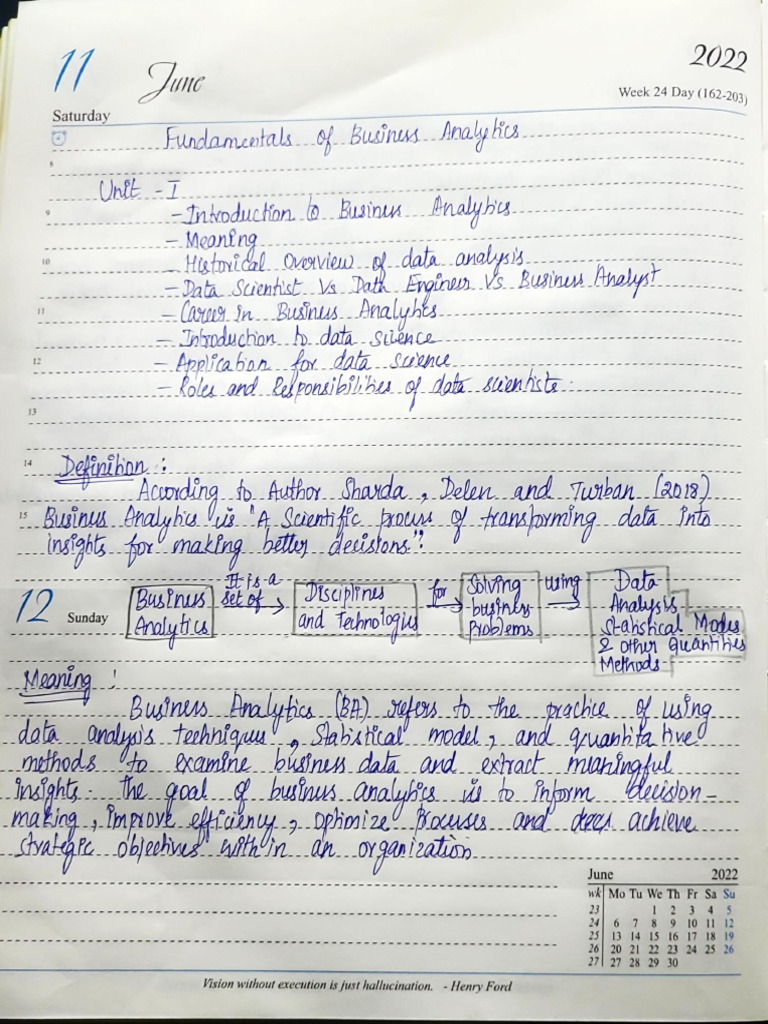 11 June 2022
Week 24 Day (162-203)
Saturday
Fundamentals of Business Analytics
8
Unit - I
9 - Introduction to Business Analytics
- Meaning
10 - Historical Overview of data analysis
- Data Scientist Vs Data Engineer Vs Business Analyst
11 - Career in Business Analytics
- Introduction to data science
12 - Application for data science
- Roles and Responsibilities of data scientists
13
14 Definition :
According to Author Sharda, Delen and Turban (2018)
15 Business Analytics is "A Scientific process of transforming data into
insights for making better decisions".
12 Sunday
Business Analytics
It is a set of →
Disciplines and Technologies
for →
Solving business Problems
using →
Data Analysis Statistical Modes & other Quantities Methods
Meaning :
Business Analytics (BA) refers to the practice of using
data analysis techniques, Statistical model, and quantitative
methods to examine business data and extract meaningful
insights. the goal of business analytics is to inform decision-
making, improve efficiency, optimize Processes and achieve
strategic objectives within an organization
June 2022
wk Mo Tu We Th Fr Sa Su
23 1 2 3 4 5
24 6 7 8 9 10 11 12
25 13 14 15 16 17 18 19
26 20 21 22 23 24 25 26
27 27 28 29 30
Vision without execution is just hallucination. - Henry Ford